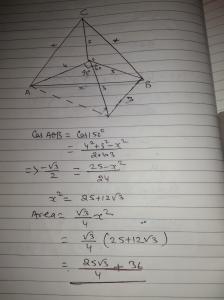 C
x
x
5
4
3
A
B
x
3
3
Cos AOB = Cos 150°
= 4² + 3² - x² / 2·4·3
=> -√3/2 = 25 - x² / 24
x² = 25 + 12√3
Area = √3/4 x²
= √3/4 (25 + 12√3)
= 25√3/4 + 36